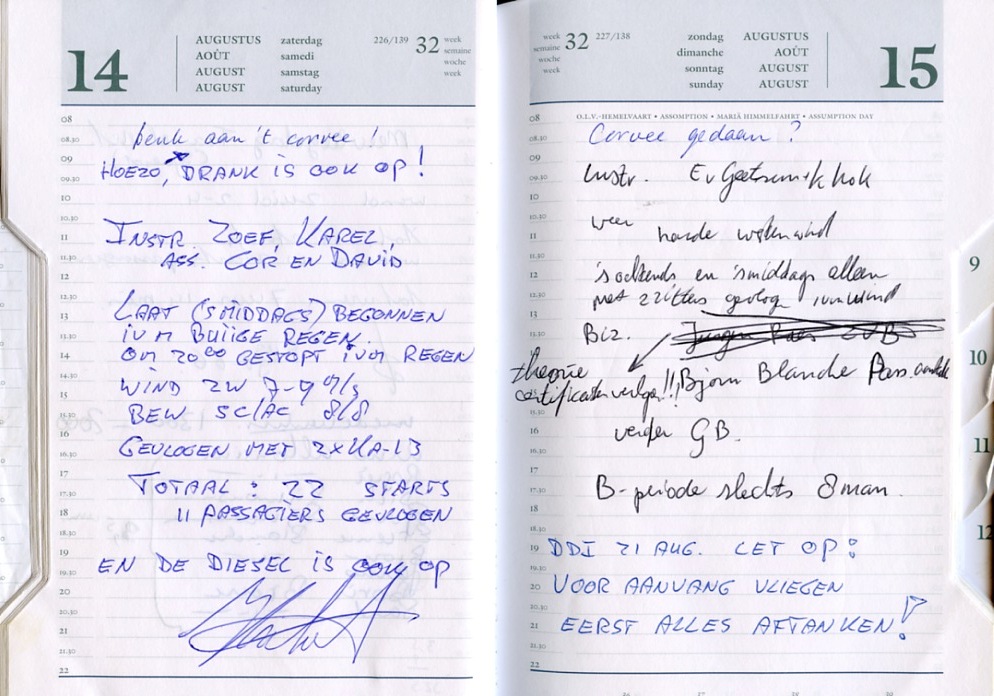 14
AUGUSTUS zaterdag
AOÛT samedi
AUGUST samstag
AUGUST saturday
226/139
32
week
semaine
woche
week
08
08.30
09
09.30
10
10.30
11
11.30
12
12.30
13
13.30
14
15
15.30
16
16.30
17
17.30
18
18.30
19
19.30
20
20.30
21
21.30
22
Denk aan 't corvee!
HOEZO, DRANK IS OOK OP!
INSTR. ZOEF, KAREL,
ASS. COR EN DAVID
LAAT ('SMIDDAGS) BEGONNEN
IVM BUIIGE REGEN.
OM 20⁰⁰ GESTOPT IVM REGEN
WIND ZW 7-9 M/S
BEW SC/AC 8/8
GEVLOGEN MET 2XKA-13
TOTAAL: 22 STARTS
11 PASSAGIERS GEVLOGEN
EN DE DIESEL IS OOK OP
week
semaine
woche
week
32
227/138
zondag AUGUSTUS
dimanche AOÛT
sonntag AUGUST
sunday AUGUST
15
O.L.V.-HEMELVAART • ASSOMPTION • MARIÄ HIMMELFAHRT • ASSUMPTION DAY
08
08.30
09
09.30
10
10.30
11
11.30
12
12.30
13
13.30
14
14.30
15
15.30
16
16.30
17
17.30
18
18.30
19
19.30
20
20.30
21
21.30
22
Corvee gedaan?
Instr. Ev
weer harde
'sochtends en 'smiddags alleen
met 2 zitters
Biz.
theorie
Bjorn Blanche Pass
verder GB.
B-periode slechts 8 man.
DDI 21 AUG. LET OP:
VOOR AANVANG VLIEGEN
EERST ALLES AFTANKEN!
9
10
11
12